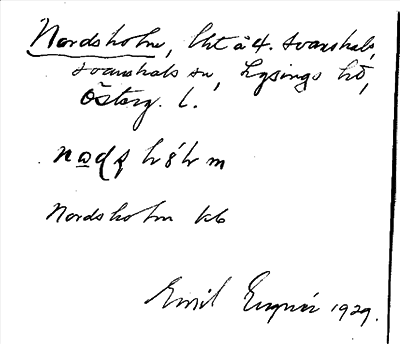 Nordsholm, lht å 4. Svanshals,
Svanshals sn, Lysings hd,
Österg. l.
Nordsholm kb
Emil 1929.